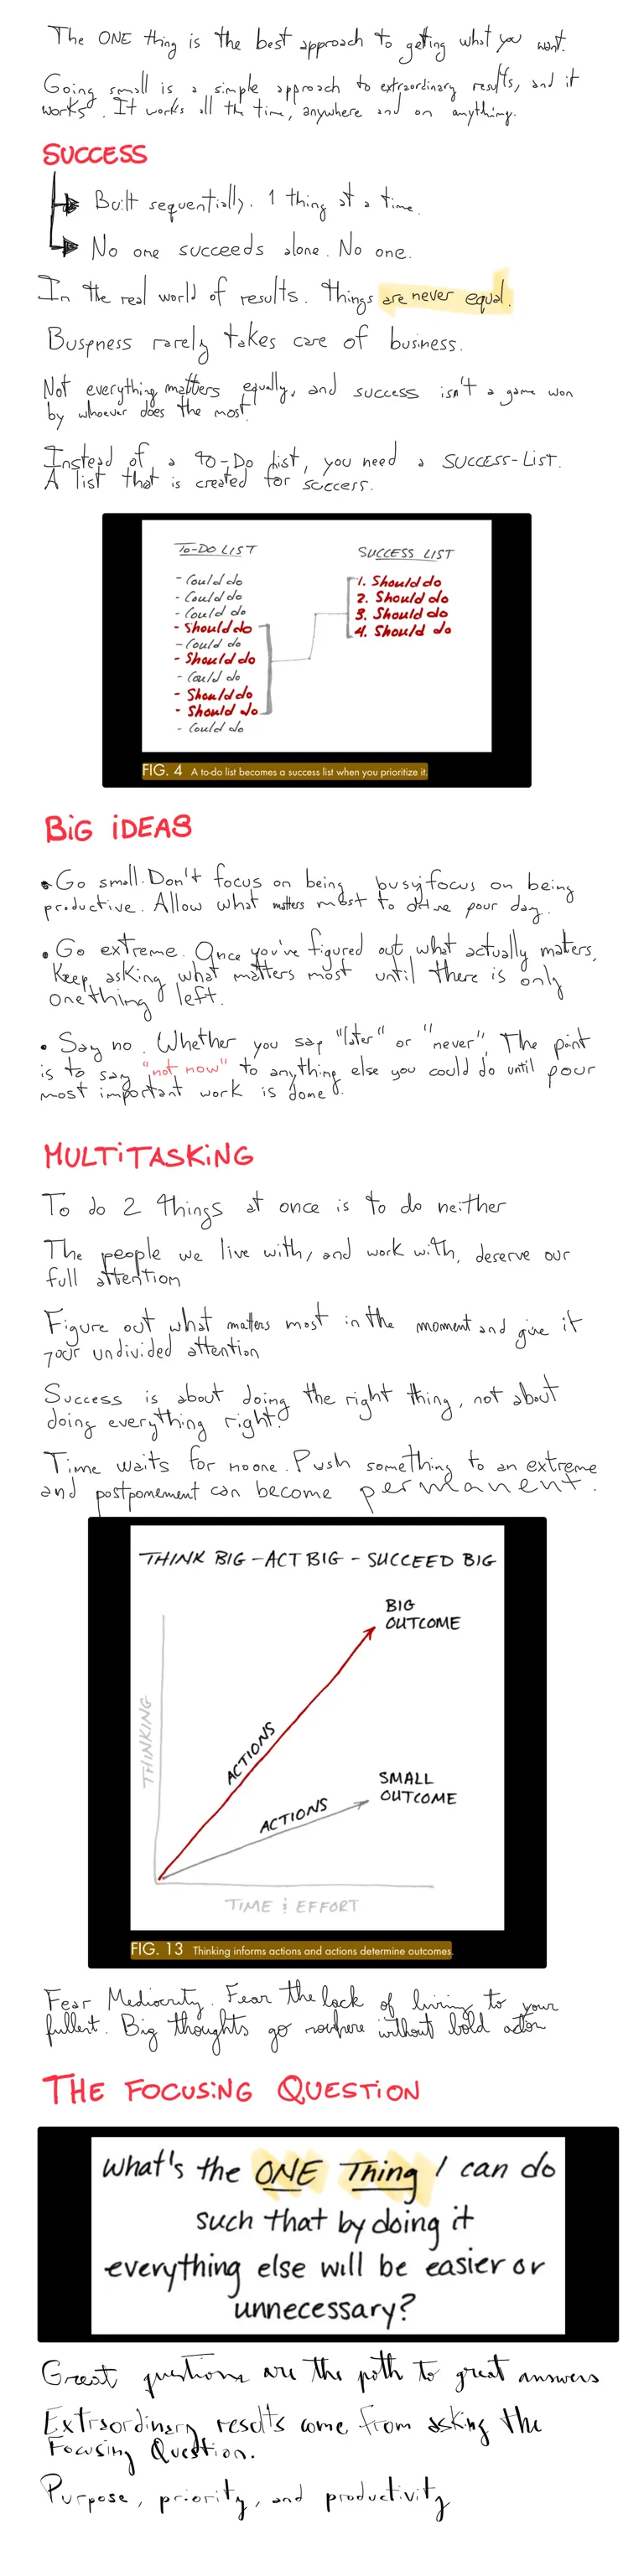 The ONE thing is the best approach to geting what you want.
Going small is a simple approach to extraordinary results, and it
works. It works all the time, anywhere and on anything.
SUCCESS
Built sequentially. 1 thing at a time.
No one succeeds alone. No one.
In the real world of results. Things are never equal.
Busyness rarely takes care of business.
Not everything matters equally, and success isn't a game won
by whoever does the most.
Instead of a to-Do list, you need a SUCCESS-LIST.
A list that is created for success.
TO-DO LIST
- Could do
- Could do
- Could do
- Should do
- Could do
- Should do
- Could do
- Should do
- Should do
- Could do
SUCCESS LIST
1. Should do
2. Should do
3. Should do
4. Should do
FIG. 4 A to-do list becomes a success list when you prioritize it.
BIG IDEAS
• Go small. Don't focus on being busy, focus on being
productive. Allow what matters most to drive your day.
• Go extreme. Once you've figured out what actually maters,
Keep asking what matters most until there is only
one thing left.
• Say no. Whether you say "later" or "never", The point
is to say "not now" to anything else you could do until your
most important work is done.
MULTITASKING
To do 2 things at once is to do neither
The people we live with, and work with, deserve our
full attention
Figure out what matters most in the moment and give it
your undivided attention
Success is about doing the right thing, not about
doing everything right.
Time waits for no one. Push something to an extreme
and postponement can become permanent.
THINK BIG - ACT BIG - SUCCEED BIG
BIG
OUTCOME
THINKING
ACTIONS
SMALL
OUTCOME
ACTIONS
TIME & EFFORT
FIG. 13 Thinking informs actions and actions determine outcomes.
Fear Mediocrity. Fear the lack of living to your
fullest. Big thoughts go nowhere without bold action
THE FOCUSING QUESTION
What's the ONE Thing I can do
such that by doing it
everything else will be easier or
unnecessary?
Great questions are the path to great answers
Extraordinary results come from asking the
Focusing Question.
Purpose, priority, and productivity